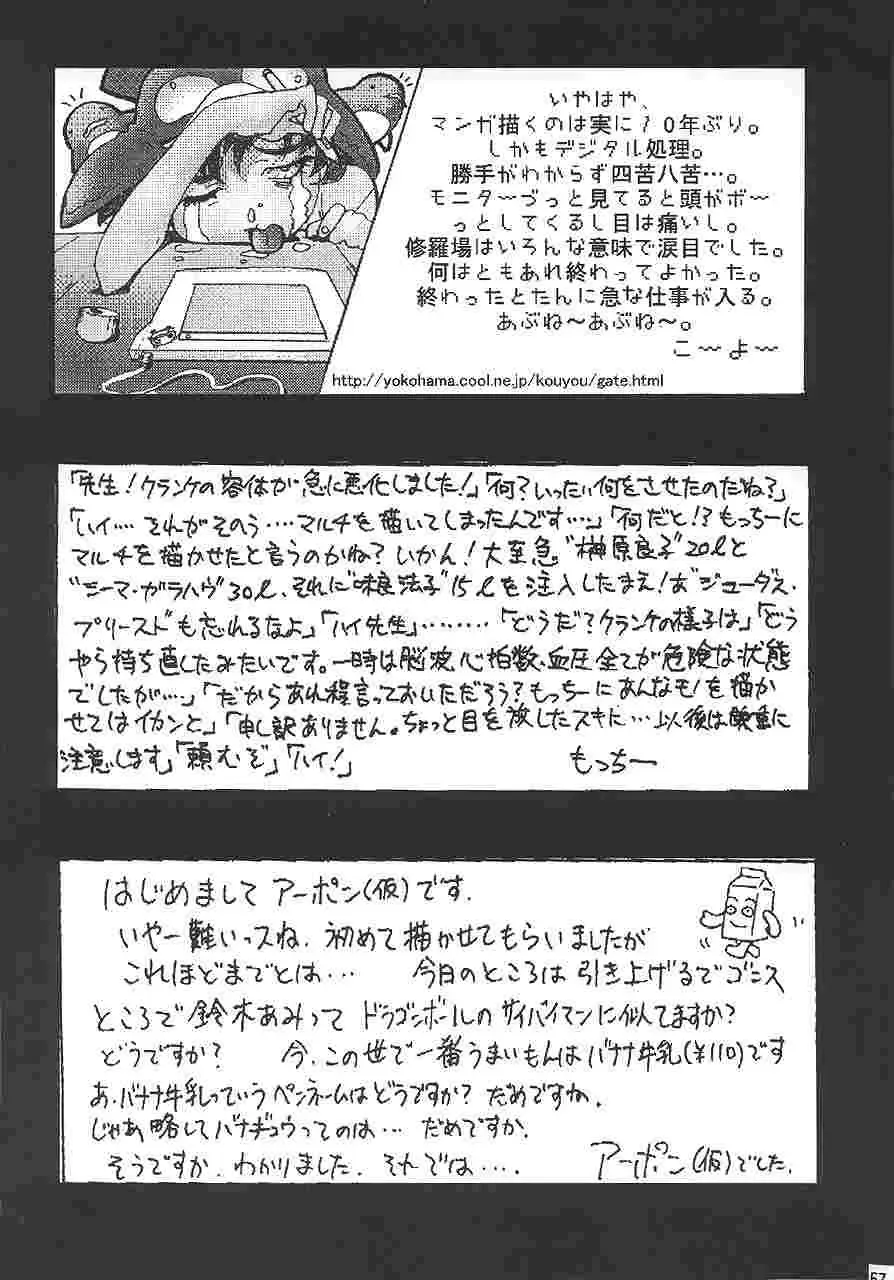 いやはや、
マンガ描くのは実に10年ぶり。
しかもデジタル処理。
勝手がわからず四苦八苦…。
モニター～づっと見てると頭がボ～
っとしてくるし目は痛いし。
修羅場はいろんな意味で涙目でした。
何はともあれ終わってよかった。
終わったとたんに急な仕事が入る。
あぶね～あぶね～。
こ～よ～
http://yokohama.cool.ne.jp/kouyou/gate.html
「先生！クランケの容体が急に悪化しました！」「何？いったい何をさせたのだね？」
「ハイ…. それがそのう….マルチを描いてしまったんです….」「何だと!？もっちーに
マルチを描かせたと言うのかね？いかん！大至急"榊原良子"20lと
"ニーマ・ガラハヴ"30l、それに"味良法子"15lを注入したまえ！あ"ジューダス・
プリースト"も忘れるなよ」「ハイ先生」………「どうだ？クランケの様子は」「どう
やら持ち直したみたいです。一時は脳波、心拍数、血圧全てが危険な状態
でしたが….」「だからあれ程言っておいただろう？もっちーにあんなモノを描か
せてはイカンと」「申し訳ありません。ちょっと目を放したスキに…以後は慎重に
注意します」「頼むぞ」「ハイ！」
もっちー
はじめまして アーポン(仮)です.
いやー難いっスね. 初めて描かせてもらいましたが
これほどまでとは… 今日のところは引き上げるでゴンス
ところで鈴木あみって ドラゴンボールのサイバイマンに似てますか？
どうですか？ 今、この世で一番うまいもんはバナナ牛乳(￥110)です
あ、バナナ牛乳っていうペンネームはどうですか？ だめですか.
じゃあ略してバナギュウってのは… だめですか.
そうですか. わかりました. それでは….
アーポン(仮)でした.
67